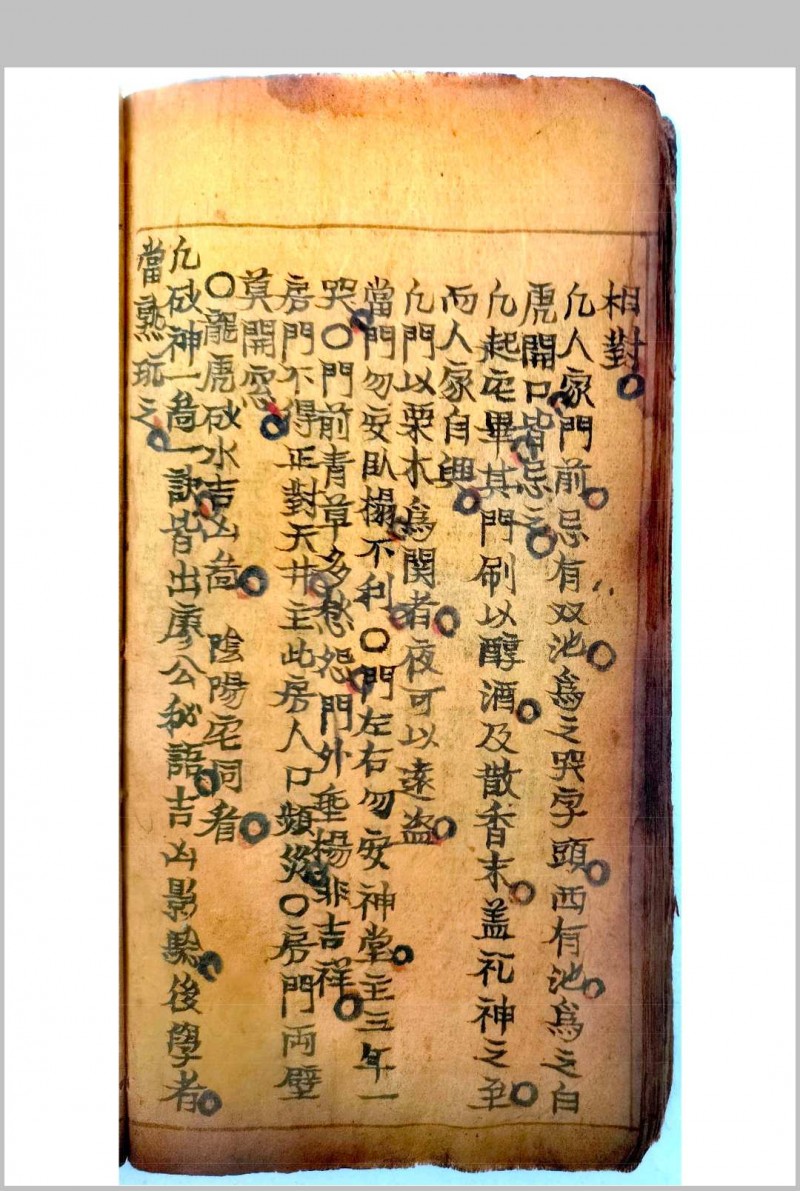 相對
凢人家門前忌有双池為之哭字頭西有池為之白
虎開口皆忌之
凢起宅畢其門刷以醇酒及散香末盖礼神之至
而人家自興
凢門以栗木為関者夜可以遠盗
當門勿安臥榻不利〇門左右勿安神堂主三年一
哭〇門前青草多愁怨門外垂楊非吉祥
房門不得正對天井主此房人口頻災〇房門両壁
莫開窓
〇龍虎砂水吉凶啚 陰陽宅同看
凢砂神一啚一訣皆出廖公秘語吉凶影驗後學者
當熟玩之